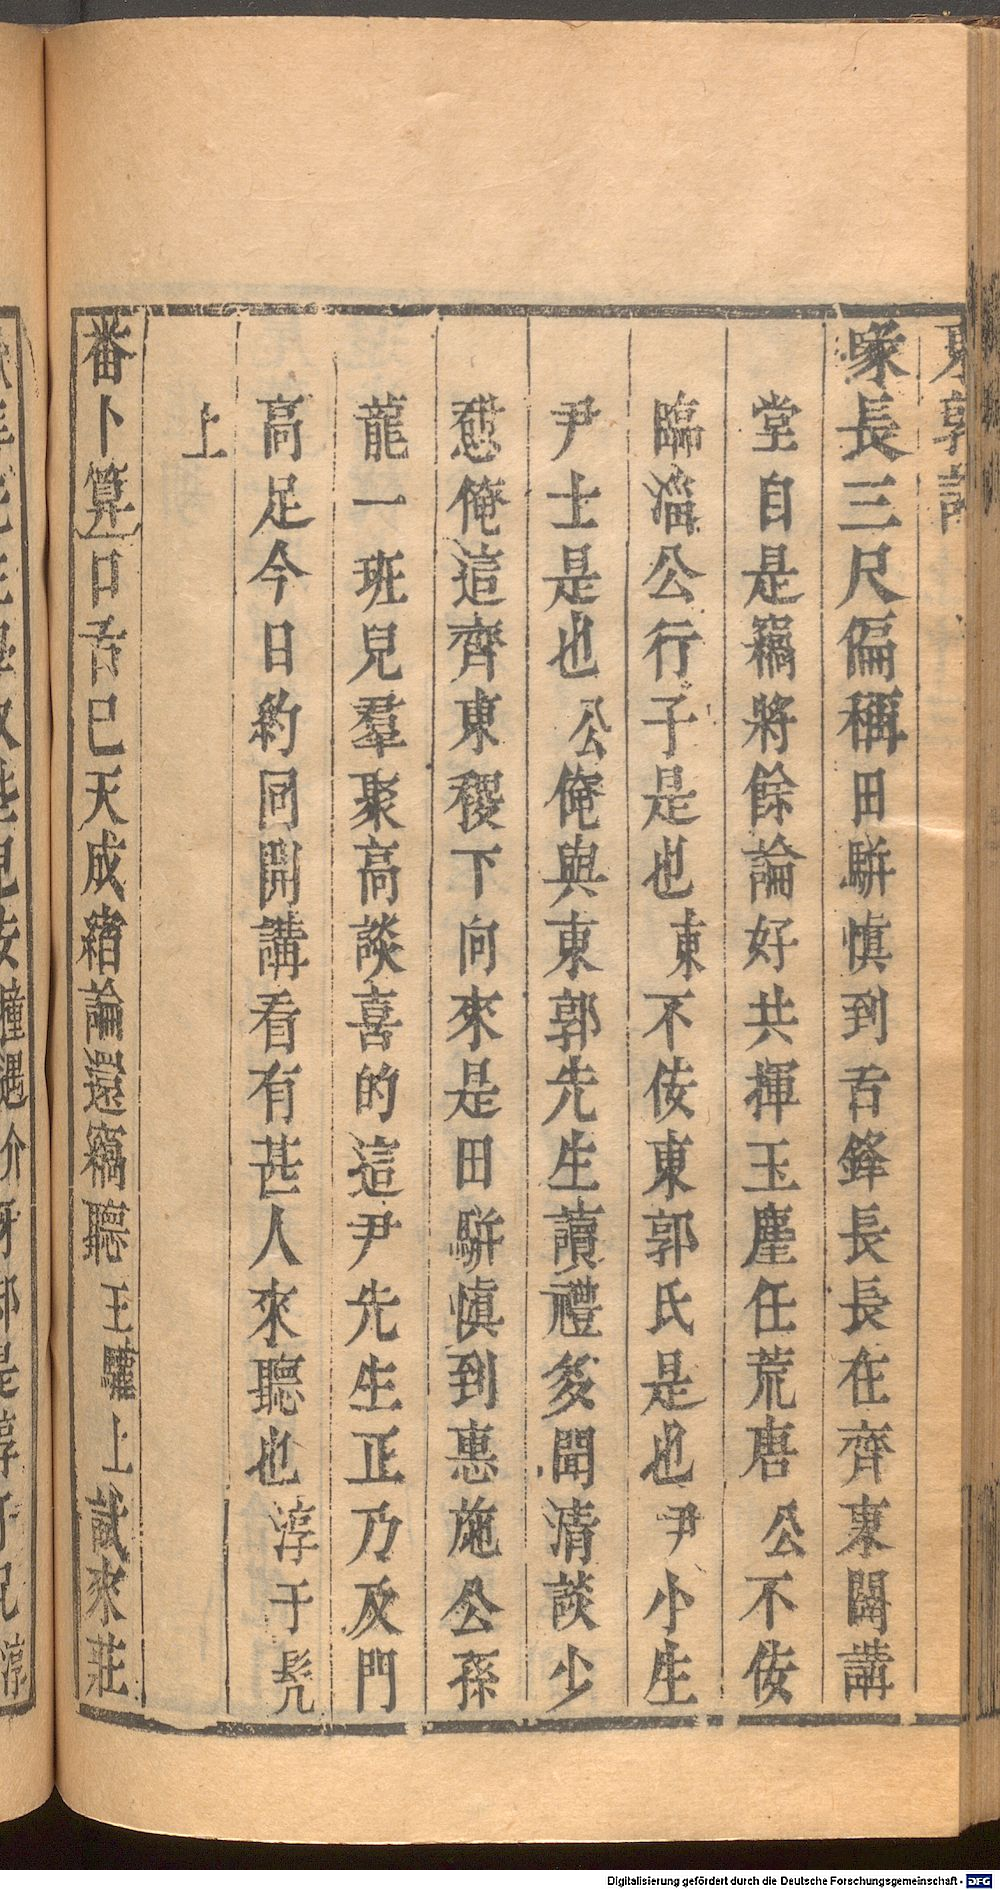 東郭記
喙長三尺偏稱田駢慎到舌鋒長長在齊東開講
堂自是竊將餘論好共揮玉麈任荒唐公不佞
臨淄公行子是也東不佞東郭氏是也尹小生
尹士是也公俺與東郭先生讀禮多聞清談少
愆俺這齊東稷下向來是田駢慎到惠施公孫
龍一班兒羣聚高談喜的這尹先生正乃及門
高足今日約同開講看有甚人來聽也淳于髡
上
番卜算口舌已天成緒論還竊聽王驩上試來莊
Digitalisierung gefördert durch die Deutsche Forschungsgemeinschaft - DFG